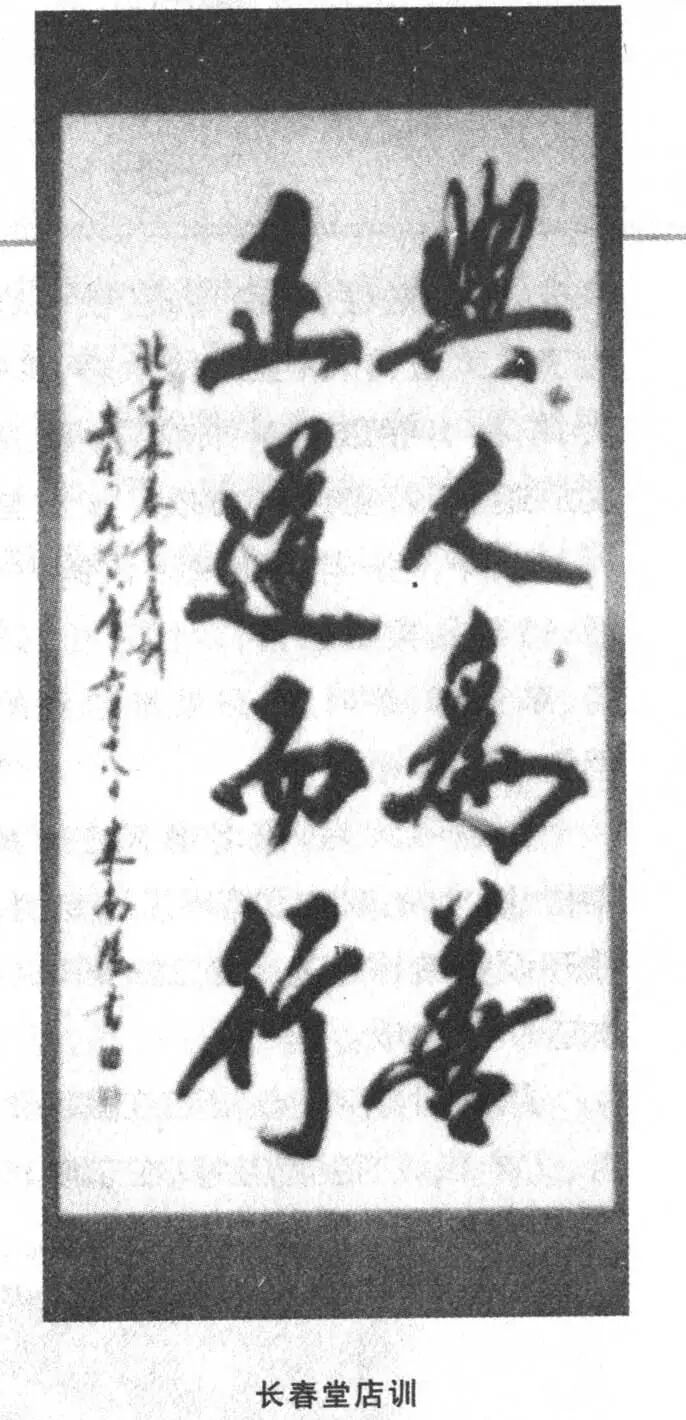 與人為善
正道而行
北京長春堂店訓
六月十八日
書
长春堂店训